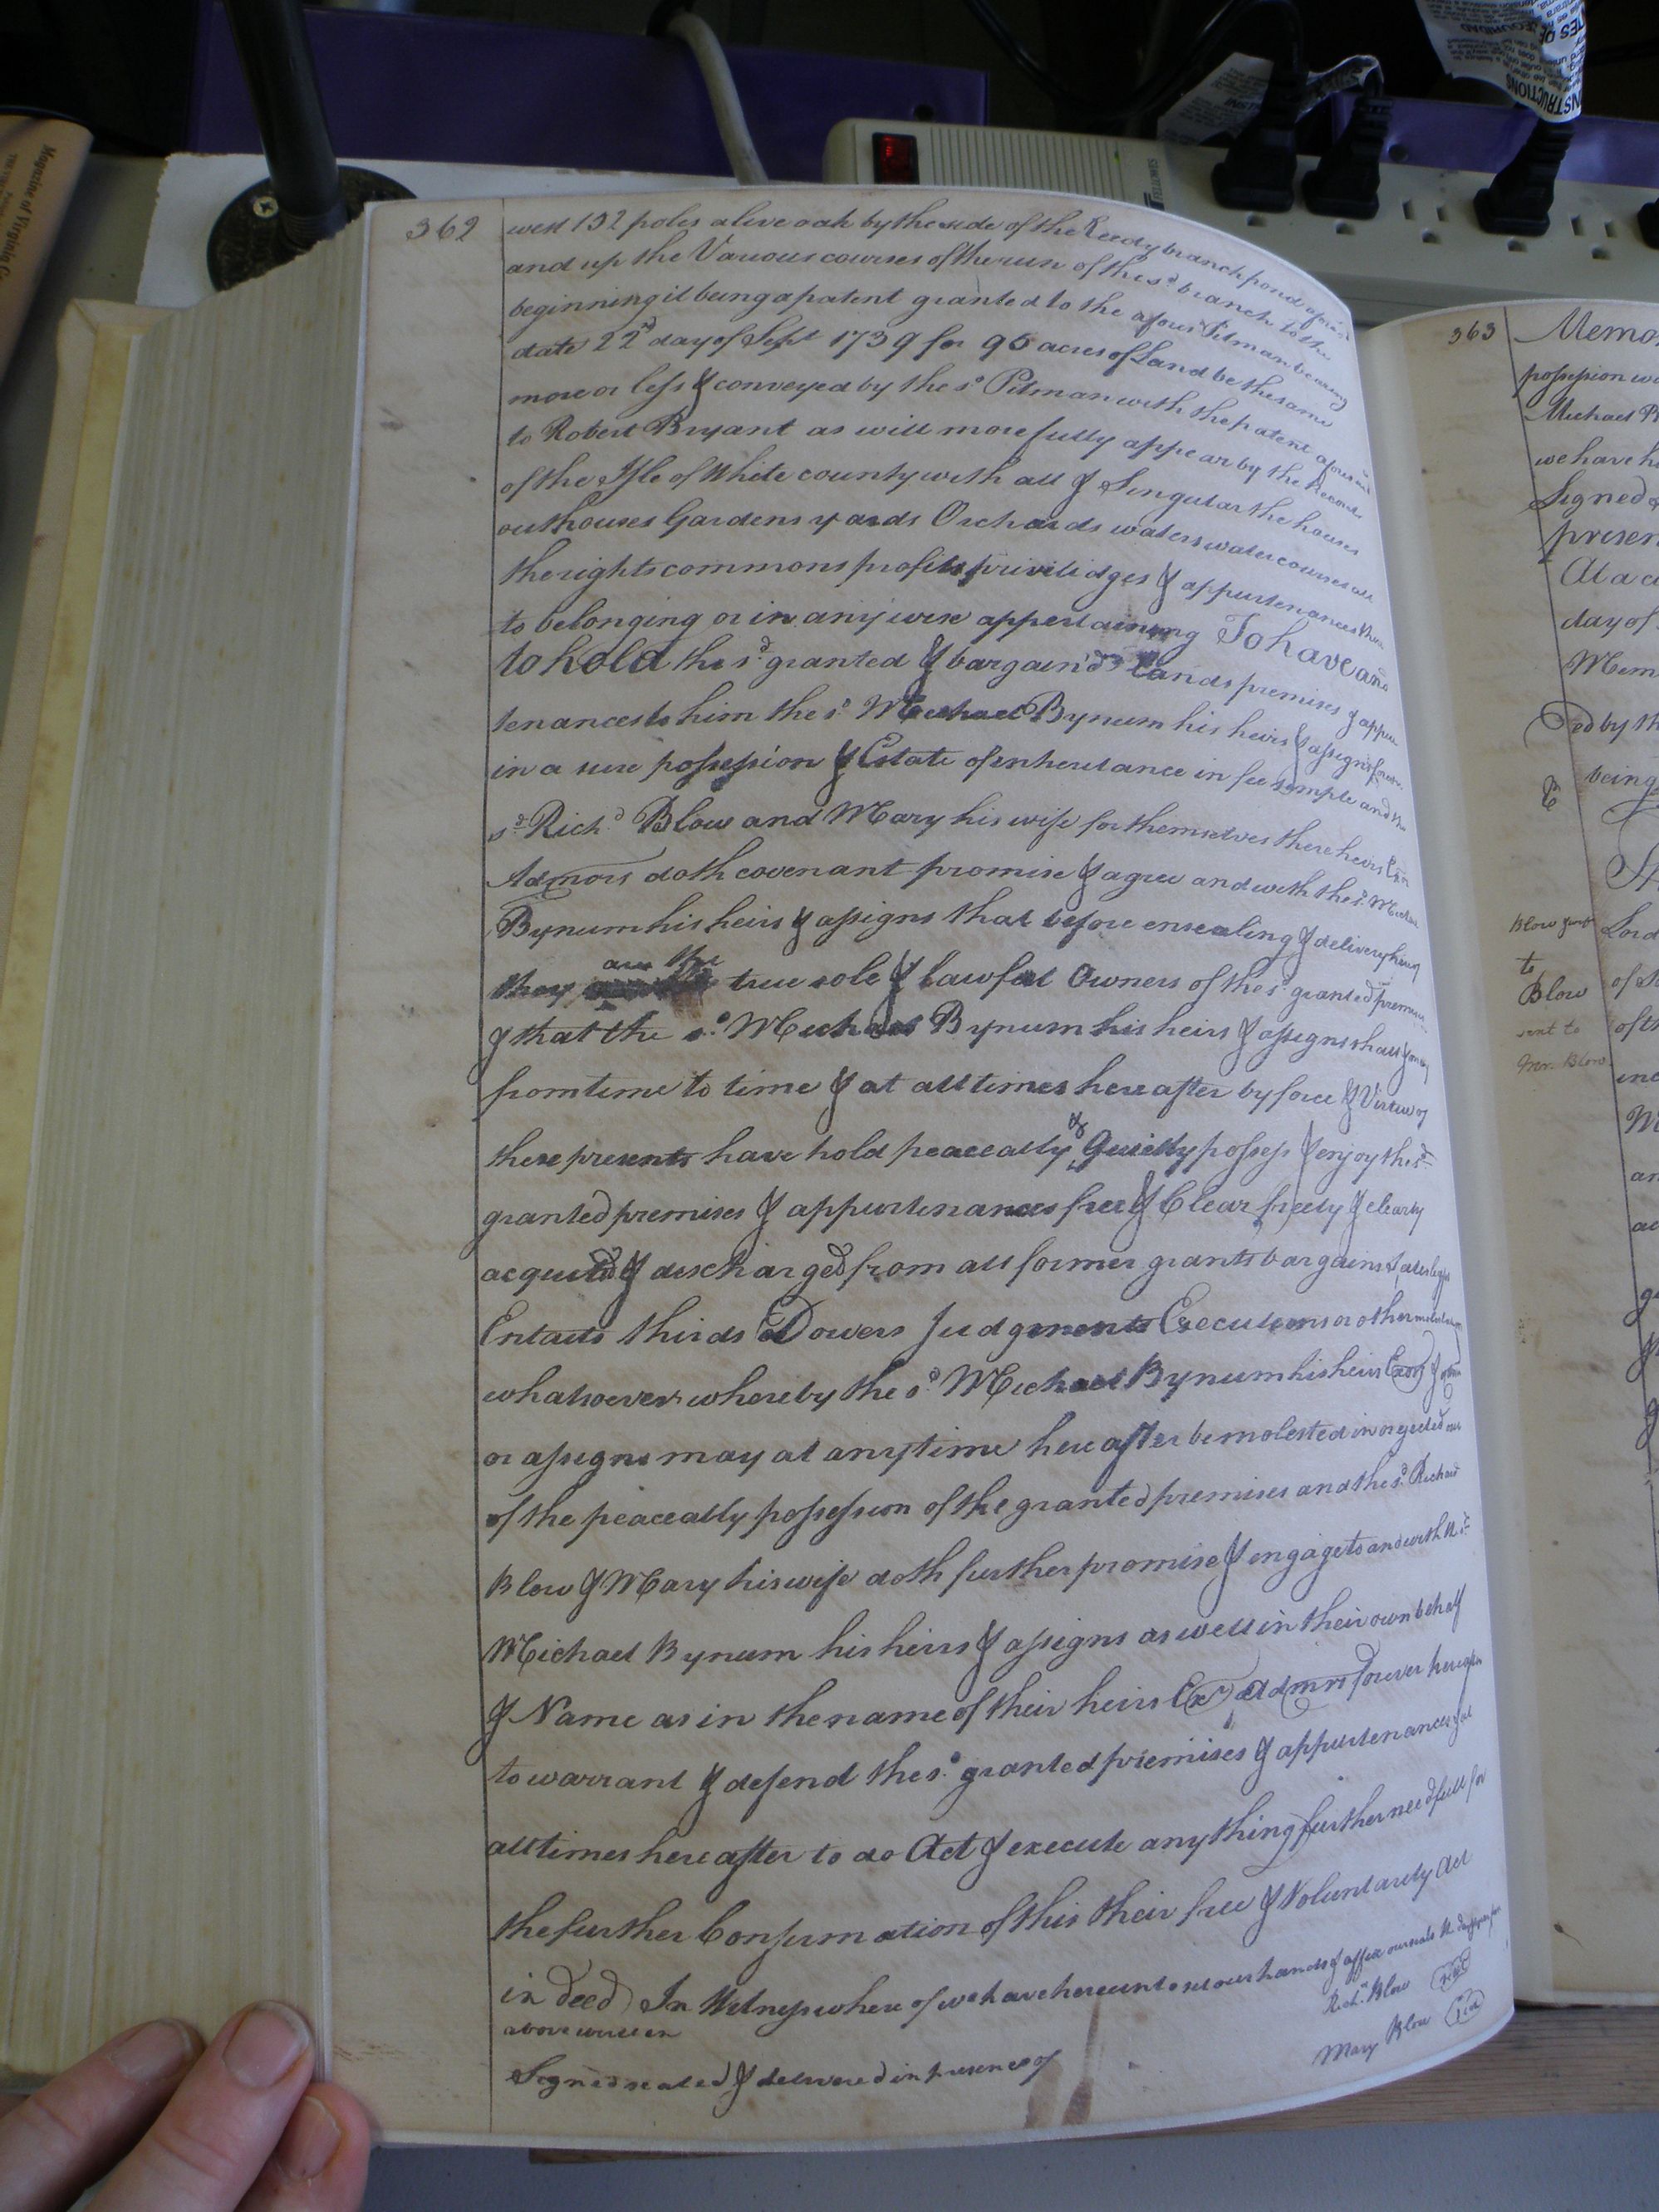 362
west 132 poles a live oak by the side of the Reedy branch pond
and up the Various courses of the run of the sd. branch to the
beginning it being a patent granted to the afousd Pitman bearing
date 22d day of Sept 1739 for 95 acres of Land be the same
more or less & conveyed by the sd Pitman with the patent
to Robert Bryant as will more fully appear by the Records
of the Isle of White county with all & Singular the houses
outhouses Gardens yards Orchards waters water courses all
the rights commons profits priviledges & appurtenances
to belonging or in any wise appertaining To have and
to hold the sd. granted & bargain'd Lands premises & appur
tenances to him the sd. Michael Bynum his heirs & assigns
in a sure possession & Estate of enheritance in fee simple and the
sd. Richd. Blow and Mary his wife for themselves there heirs Exrs
Admors doth covenant promise & agree and with the sd.
Bynum his heirs & assigns that before ensealing & delivery
they are the true sole & lawful Owners of the sd. granted premises
& that the sd. Michael Bynum his heirs & assigns shall
from time to time & at all times hereafter by force & Virtue of
these presents have hold peaceably & Quietly possess & enjoy the sd.
granted premises & appurtenances free & Clear freely & clearly
acquited & discharged from all former grants bargains
Entails thirds Dowers Judgments Executions or other
whatsoever whereby the sd. Michael Bynum his heirs Exors
or assigns may at any time hereafter be molested in or ejected out
of the peaceably possession of the granted premises and the sd. Richard
Blow & Mary his wife doth further promise & engage to and with the sd.
Michael Bynum his heirs & assigns as well in their own behalf
& Name as in the name of their heirs Exrs Admrs forever hereafter
to warrant & defend the sd. granted premises & appurtenances & at
all times hereafter to do Act & execute any thing further needfull for
the further Confirmation of this their free & Voluntarily Act
in deed In Witness where of we have hereunto set our hands & affix our seals
above written
Richd. Blow seal
Mary Blow
Signed sealed & delivered in presence of
363
Memo
possession
Michael
we have
Signed &
presen
At a
day of
Mem
ed by th
being
Blow
to
Blow
sent to
Blow
Lord
of th
Magazine of Virginia
INSTRUCTIONS